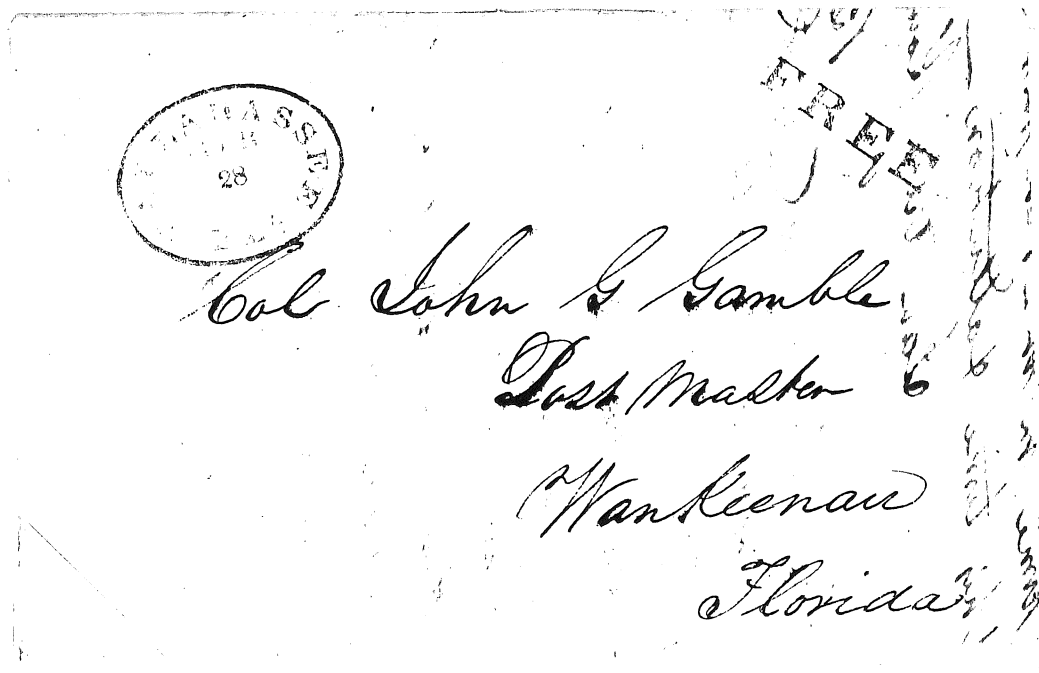 TALLAHASSEE
28
FREE
Col John G Gamble
Post Master
Wankeenau
Florida